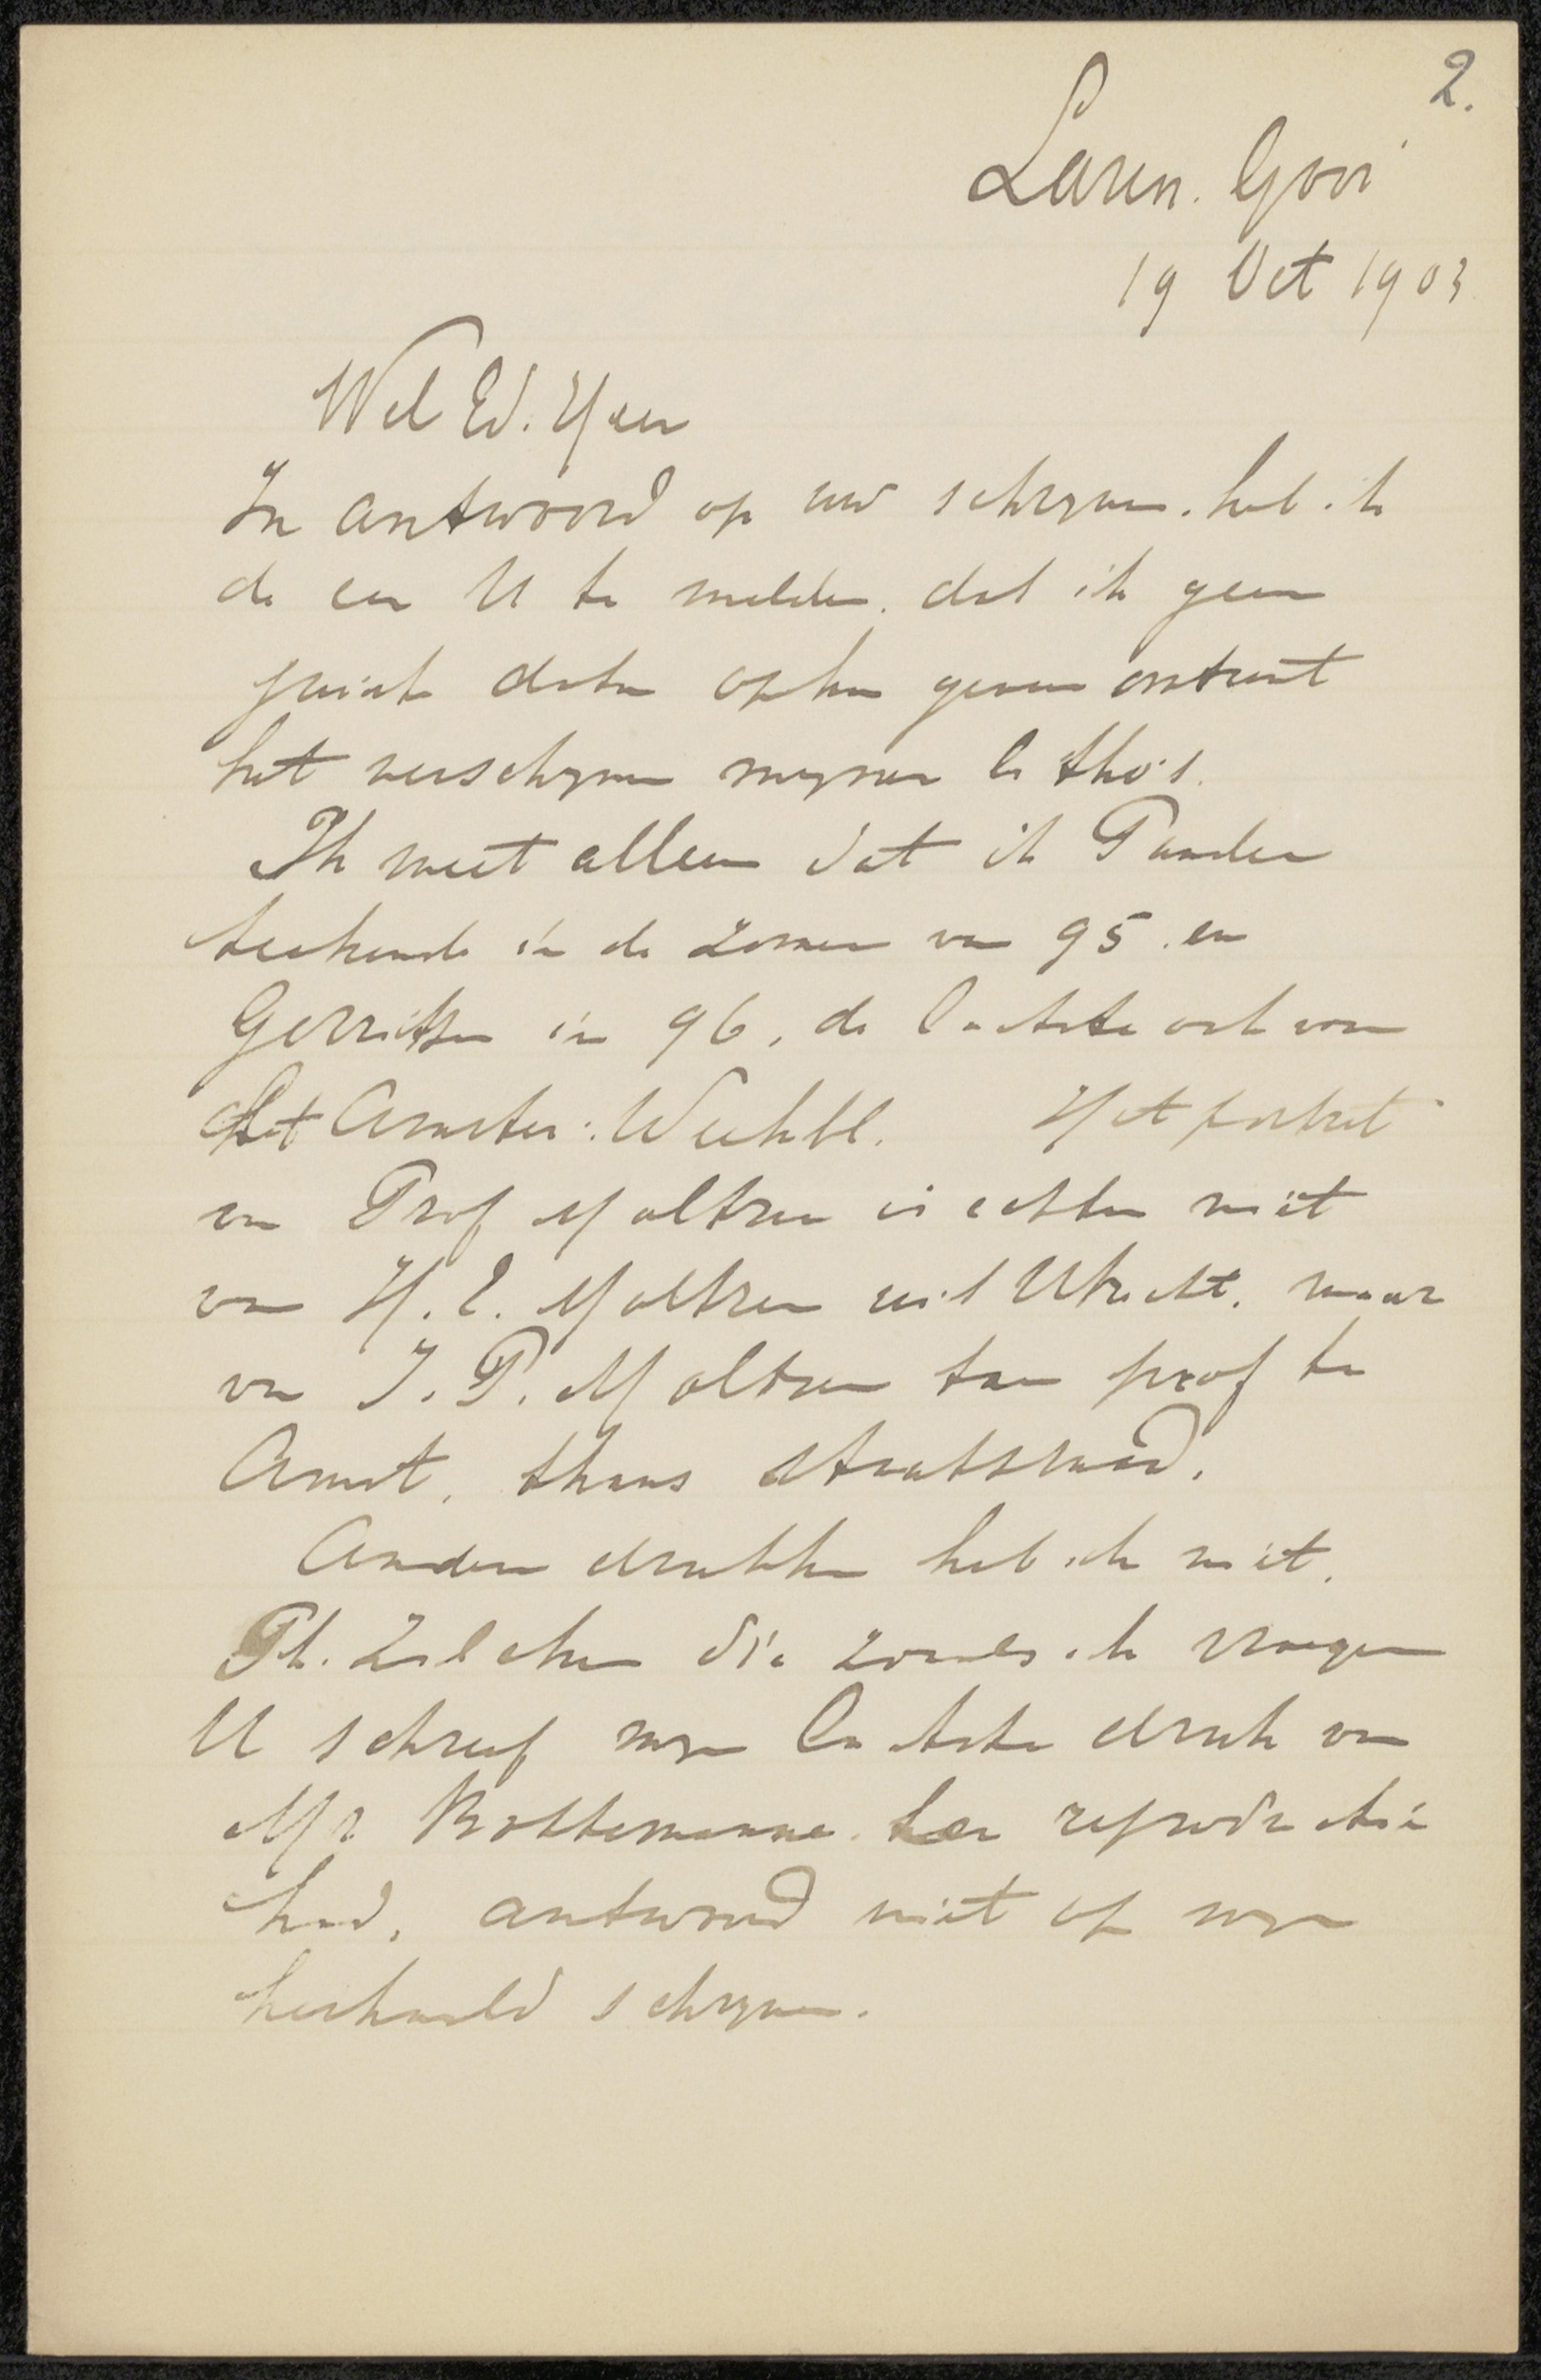 2.
Laren. Gooi
19 Oct 1903
Wel Ed. Heer
In antwoord op uw schrijven. heb ik
de eer U te melden. dat ik geen
juiste data op kan geven omtrent
het verschijnen mijner litho's.
Ik weet alleen dat ik Pander
teekende in de zomer van 95. en
Gerritsen in 96, de laatste ook voor
het Amster: Weekbl. Het portret
van Prof Moltzer is echter niet
van H. E. Moltzer uit Utrecht. maar
van J. P. Moltzer toen prof te
Amst. thans staatsraad.
Andere drukken heb ik niet.
Ph. Zilcken die zooals ik vroeger
U schreef mijn laatste druk van
Mr Bottemanne ter reproductie
had, antwoord niet op mijn
herhaald schrijven.